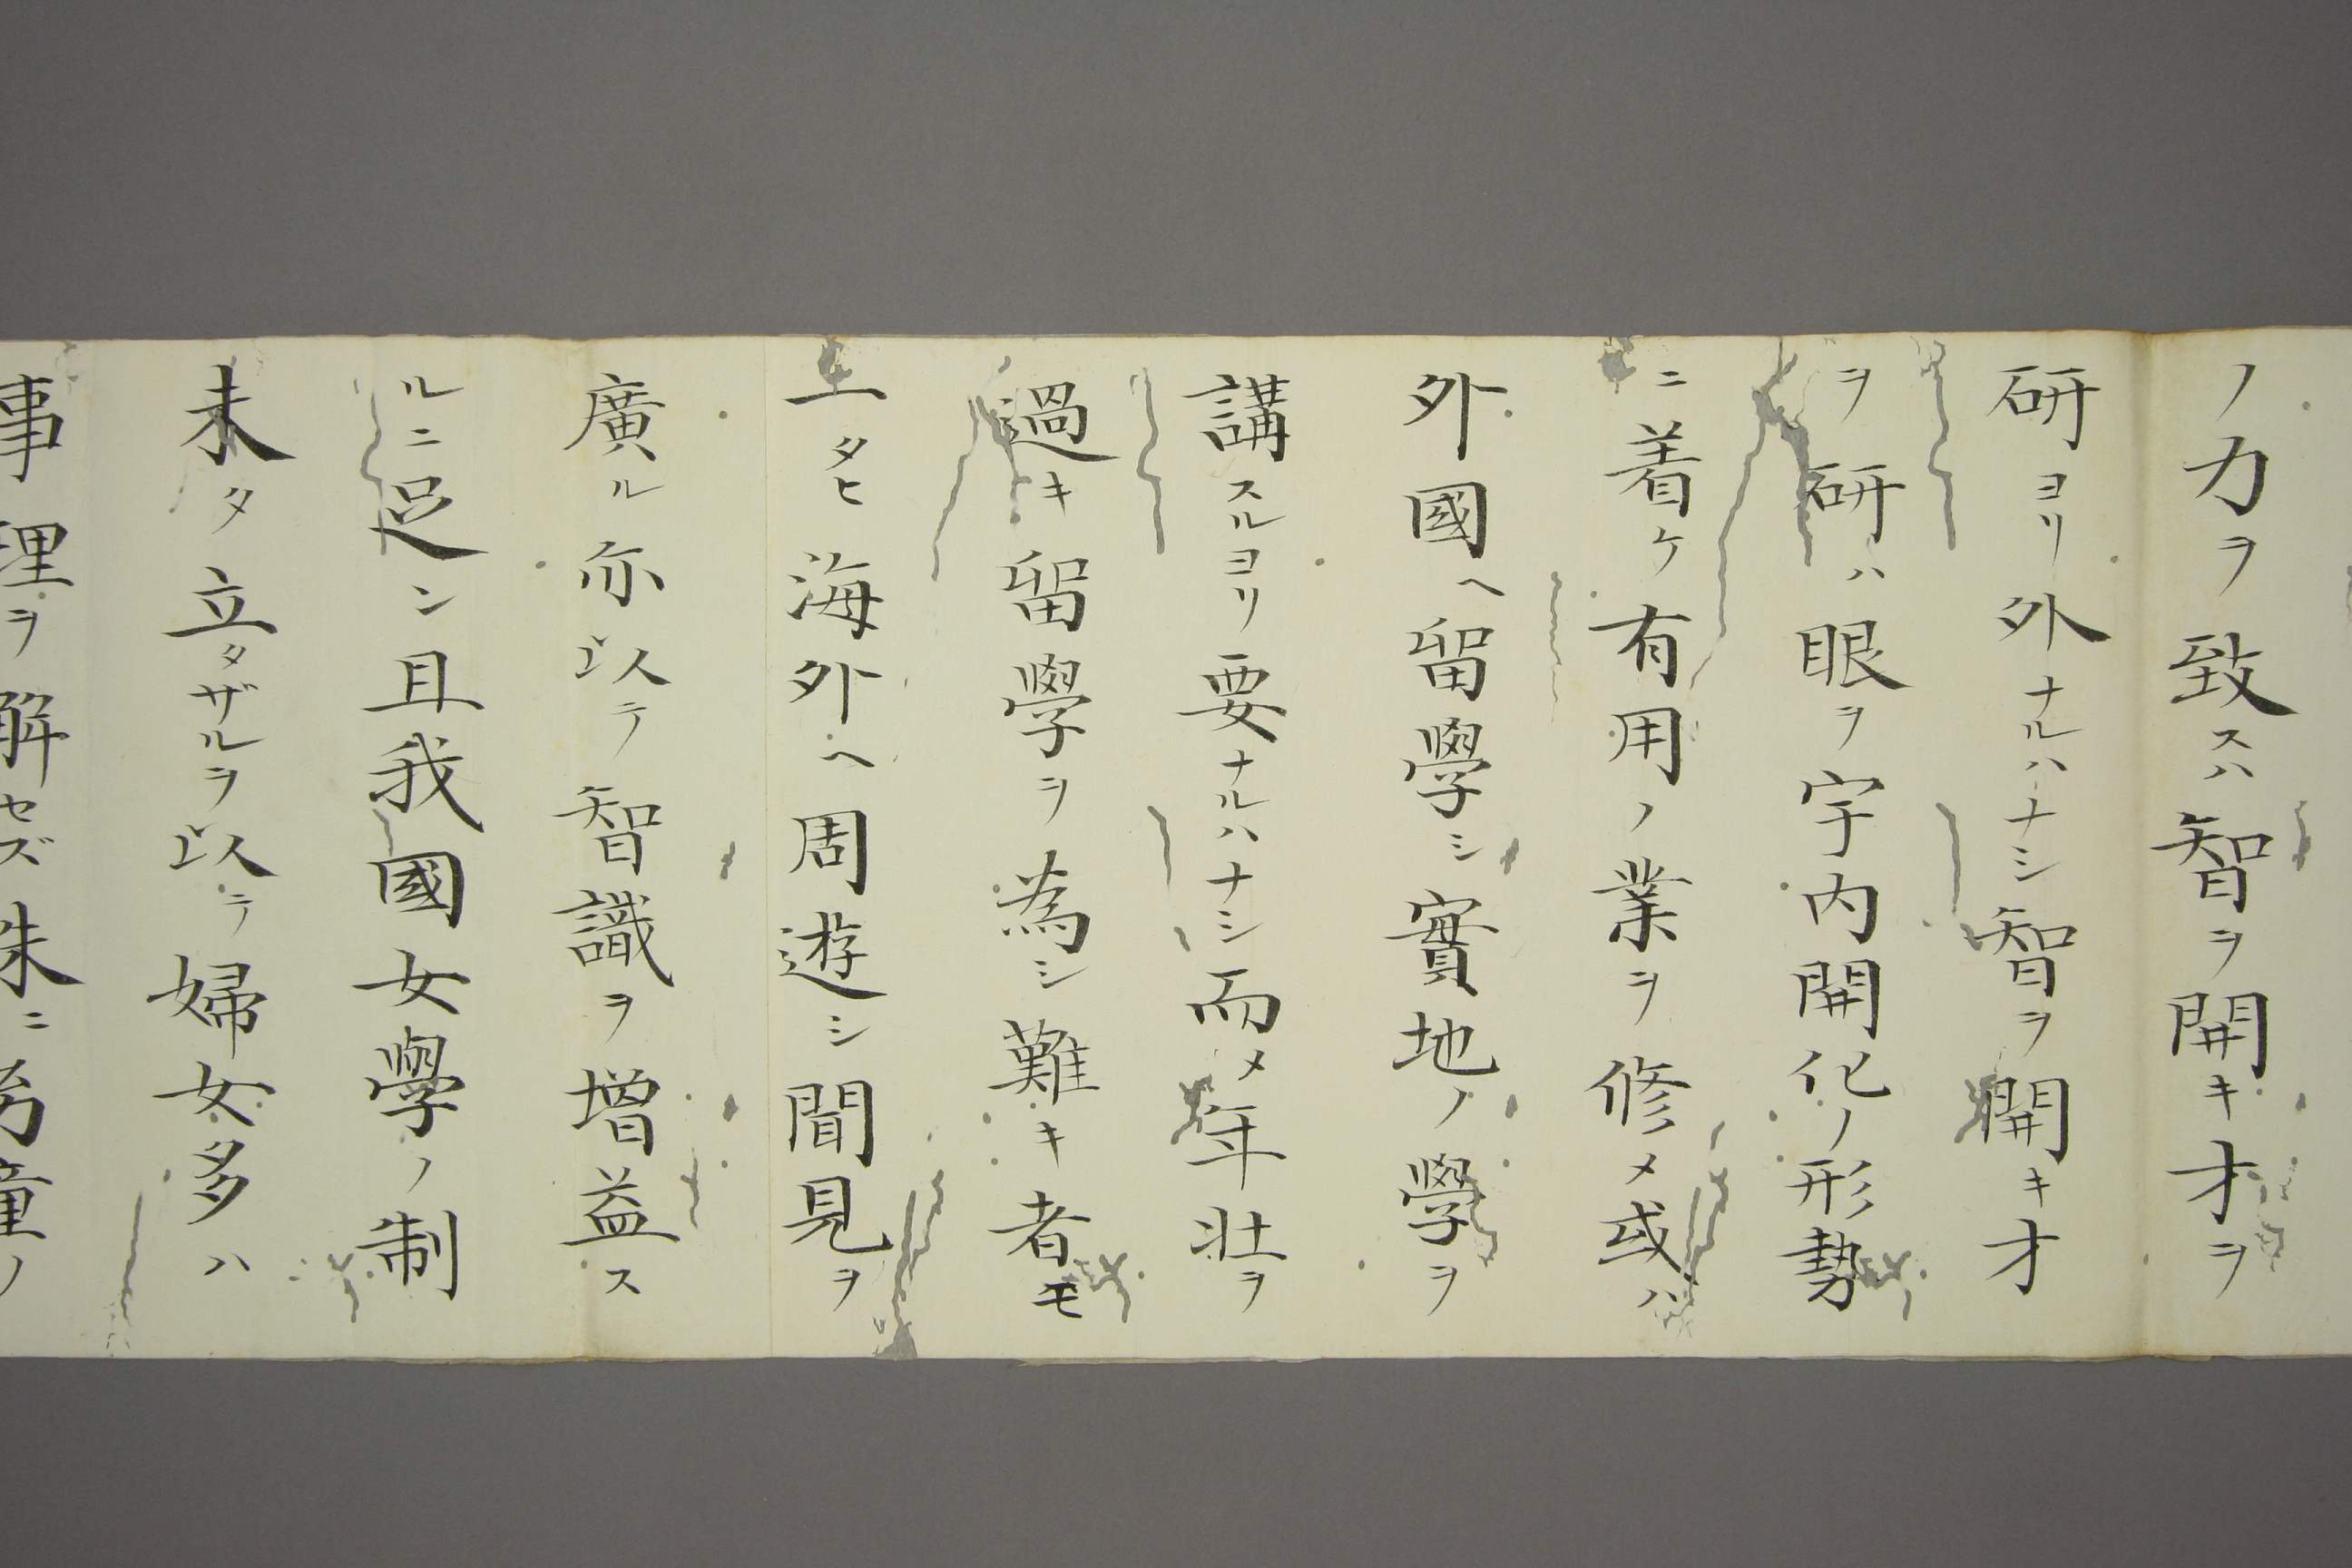 ノ力ヲ致スハ智ヲ開キ才ヲ
研ヨリ外ナルハナシ智ヲ開キ才
ヲ研ハ眼ヲ宇内開化ノ形勢
ニ着ケ有用ノ業ヲ修メ或ハ
外國ヘ留學シ實地ノ學ヲ
講スルヨリ要ナルハナシ而メ年壮ヲ
過キ留學ヲ為シ難キ者モ
一タヒ海外ヘ周遊シ聞見ヲ
廣ル亦以テ智識ヲ増益ス
ルニ足ン且我國女學ノ制
未タ立タザルヲ以テ婦女多ハ
事理ヲ解セズ殊ニ幼童ノ